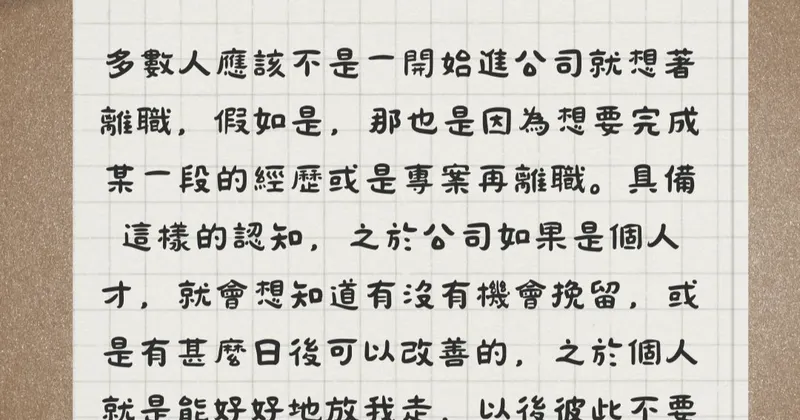 多數人應該不是一開始進公司就想著
離職，假如是，那也是因為想要完成
某一段的經歷或是專案再離職。具備
這樣的認知，之於公司如果是個人
才，就會想知道有沒有機會挽留，或
是有甚麼日後可以改善的，之於個人
就是能好好地放我走，以後彼此不要